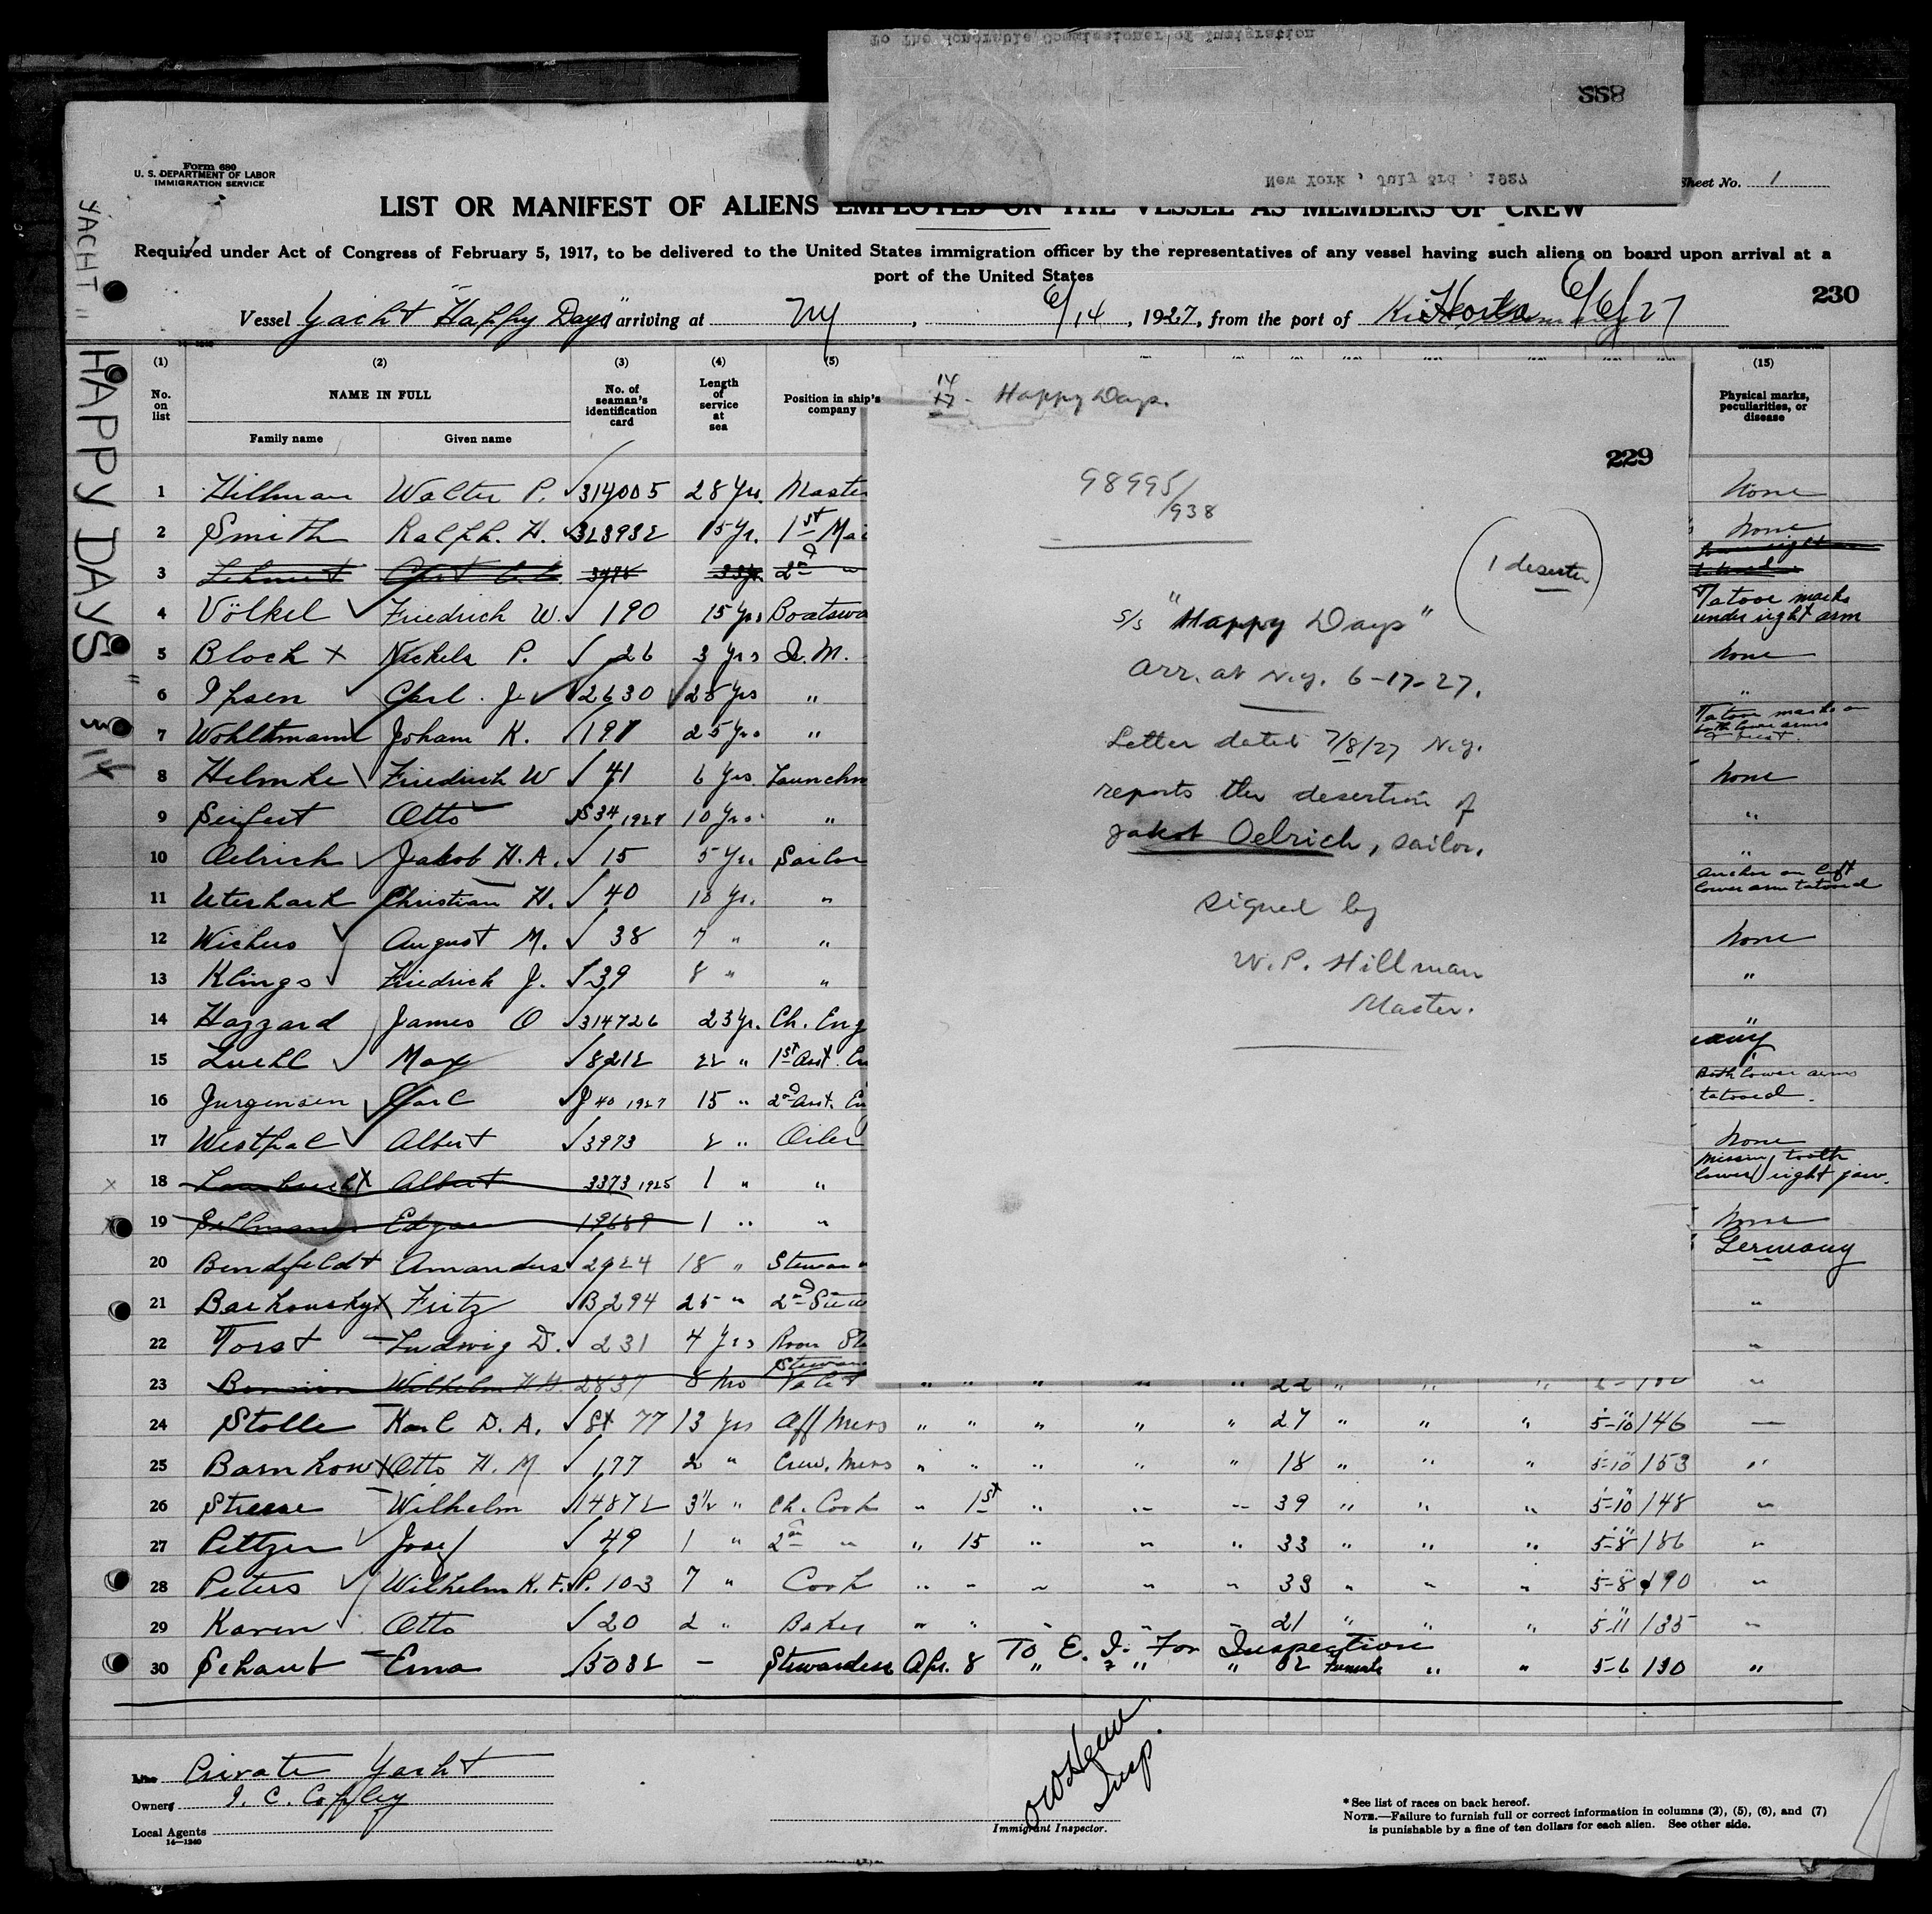 To The Honorable Commissioner of Immigration
New York, July 3rd, 1927
Form 680
U. S. DEPARTMENT OF LABOR
IMMIGRATION SERVICE
Sheet No. 1
LIST OR MANIFEST OF ALIENS EMPLOYED ON THE VESSEL AS MEMBERS OF CREW
Required under Act of Congress of February 5, 1917, to be delivered to the United States immigration officer by the representatives of any vessel having such aliens on board upon arrival at a
port of the United States
230
Vessel Yacht "Happy Days" arriving at NY, 6/14, 1927, from the port of Horta 6/6/27
YACHT "HAPPY DAYS"
(1) (2) (3) (4) (5) (15)
No. on list
NAME IN FULL
Family name Given name
No. of seaman's identification card
Length of service at sea
Position in ship's company
Physical marks, peculiarities, or disease
1 Hillman Walter P. 314005 28 Yrs. Maste none
2 Smith Ralph. H. 323932 15 Yr. 1st Ma none
3 3376 33 2d "
4 Völkel Friedrich W. 190 15 Yrs Boatswa Tatooe marks under right arm
5 Bloch x Nickels P. 26 3 Yrs Q.M. none
6 Ipsen Carl. J. 2630 25 Yrs " "
7 Wohltmann Joham K. 191 25 Yrs " Tatooe marks on both lower arms
8 Helmke Friedrich W 41 6 Yrs Launchm none
9 Seifert Otto S34 1927 10 Yrs. " "
10 Oelrich Jakob H. A. 15 5 Yrs. Sailor "
11 Uterhark Christian H. 40 18 Yr. " anchor on left lower arm tatooed
12 Wichers August M. 38 7 " " none
13 Klings Friedrich J. 39 8 " " "
14 Hazzard James O 314726 23 Yr. Ch. Eng "
15 Luehl Max 8212 22 " 1st Asst. En
16 Jurgensen Carl J 40 1927 15 " 2d Asst. En Both lower arms tatooed.
17 Westphal Albert 3973 2 " Oiler none
18 Albert 3373 1925 1 " " missing tooth lower right jaw.
19 Edgar 19689 1 " " none
20 Bendfeldt Amandus 2924 18 " Stewar Germany
21 Fritz B294 25 " 2d Stew "
22 Torst Ludwig D. 231 4 Yrs Room St "
23 Wilhelm H. 2837 8 mo Stewar Valet " " " " " 22 " " " "
24 Stolle Karl D. A. St 77 13 Yrs Off Mess " " " " " 27 " " " 5-10 146 —
25 Barnhow x Otto H. M 177 2 " Crew. Mess " " " " " 18 " " " 5-10 153 "
26 Stresse Wilhelm 14872 3½ " Ch. Cook " 1st " " " 39 " " " 5-10 148 "
27 Peltzer Josef 49 1 " 2nd " " 15 " " " 33 " " " 5-8 186 "
28 Peters Wilhelm K. F. P. 103 7 " Cook " " " " " 39 " " " 5-8 190 "
29 Karen Otto 20 2 " Baker " " " " " 21 " " " 5-11 135 "
To E. I. For Inspection
30 Schaub Erna 5032 — Stewardess Apr. 8 " " " 32 Female " " 5-6 130 "
14
17 - Happy Days.
229
98995/938
(1 deserter)
S/S "Happy Days"
Arr. at N.Y. 6-17-27.
Letter dated 7/8/27 N.Y.
reports the desertion of
Jakob Oelrich, sailor.
Signed by
W. P. Hillman
Master.
Line Private Yacht
Owners I. C. Copley
Local Agents
14—1240
Insp.
Immigrant Inspector.
* See list of races on back hereof.
NOTE.—Failure to furnish full or correct information in columns (2), (5), (6), and (7)
is punishable by a fine of ten dollars for each alien. See other side.